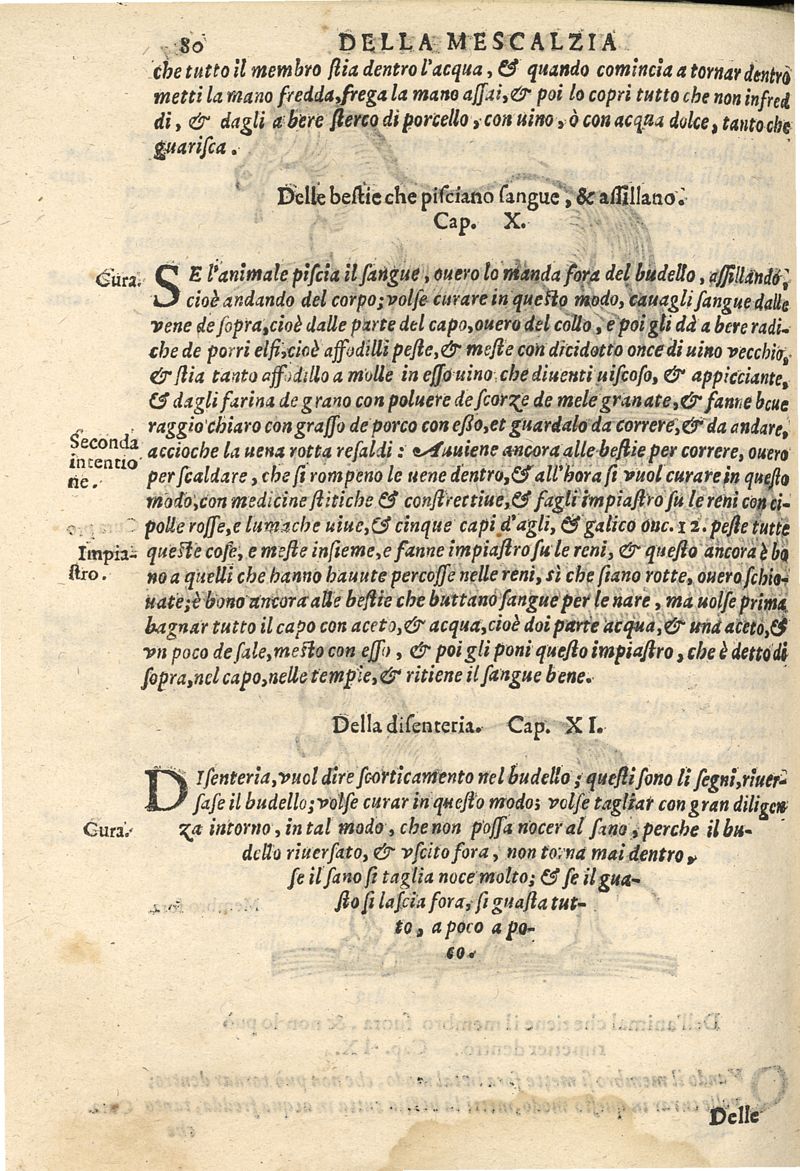 80 DELLA MESCALZIA
che tutto il membro ſtia dentro l'acqua, & quando comincia a tornar dentro
metti la mano fredda, frega la mano aſſai, & poi lo copri tutto che non infred
di, & dagli a bere ſterco di porcello, con uino, ò con acqua dolce, tanto che
guariſca.
Delle beſtie che piſciano ſangue, & aſſillano.
Cap. X.
Cura.
SE l'animale piſcia il ſangue, ouero lo manda fora del budello, aſſillando,
cioè andando del corpo; volſe curare in queſto modo, cauagli ſangue dalle
vene de ſopra, cioè dalle parte del capo, ouero del collo, e poi gli dà a bere radi-
che de porri elfi, cioè affodilli peſte, & meſte con dicidotto once di uino vecchio,
& ſtia tanto affodillo a molle in eſſo uino che diuenti uiſcoſo, & appicciante,
& dagli farina de grano con poluere de ſcorze de mele granate, & fanne beue
raggio chiaro con graſſo de porco con eſſo, et guardalo da correre, & da andare,
Seconda
intentio
ne.
accioche la uena rotta reſaldi: Auuiene ancora alle beſtie per correre, ouero
per ſcaldare, che ſi rompeno le uene dentro, & all'hora ſi vuol curare in queſto
modo, con medicine ſtitiche & conſtrettiue, & fagli impiaſtro ſu le reni con ci-
polle roſſe, e lumache uiue, & cinque capi d'agli, & galico onc. 12. peſte tutte
Impia-
ſtro.
queſte coſe, e meſte inſieme, e fanne impiaſtro ſu le reni, & queſto ancora è bo
no a quelli che hanno hauute percoſſe nelle reni, sì che ſiano rotte, ouero ſchio-
uate; è bono ancora alle beſtie che buttano ſangue per le nare, ma uolſe prima
bagnar tutto il capo con aceto, & acqua, cioè doi parte acqua, & una aceto, &
vn poco de ſale, meſto con eſſo, & poi gli poni queſto impiaſtro, che è detto di
ſopra, nel capo, nelle tempie, & ritiene il ſangue bene.
Della diſenteria. Cap. XI.
DIſenteria, vuol dire ſcorticamento nel budello; queſti ſono li ſegni, riuer-
ſaſe il budello; volſe curar in queſto modo; volſe tagliar con gran diligen
Cura.
za intorno, in tal modo, che non poſſa nocer al ſano, perche il bu-
dello riuerſato, & vſcito fora, non torna mai dentro,
ſe il ſano ſi taglia noce molto; & ſe il gua-
ſto ſi laſcia fora, ſi guaſta tut-
to, a poco a po-
co.
Delle